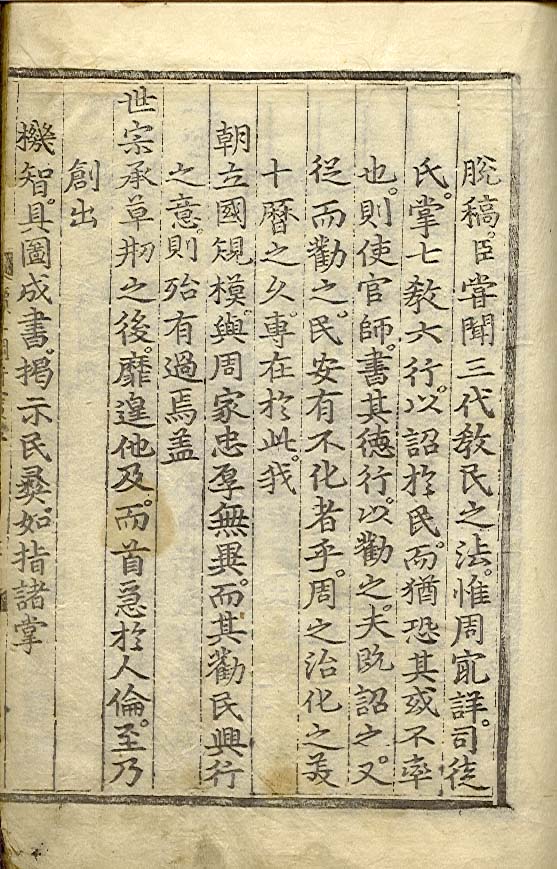 脫稿。臣嘗聞三代敎民之法。惟周㝡詳。司徒
氏。掌七敎六行。以詔於民。而猶恐其或不率
也。則使官師。書其德行。以勸之。夫旣詔之。又
從而勸之。民安有不化者乎。周之治化之美
十曆之久。專在於此。我
朝立國規模。與周家忠厚無異。而其勸民興行
之意。則殆有過焉。盖
世宗承草刱之後。靡遑他及。而首急於人倫。至乃
創出
機智。具圖成書。揭示民彛。如指諸掌